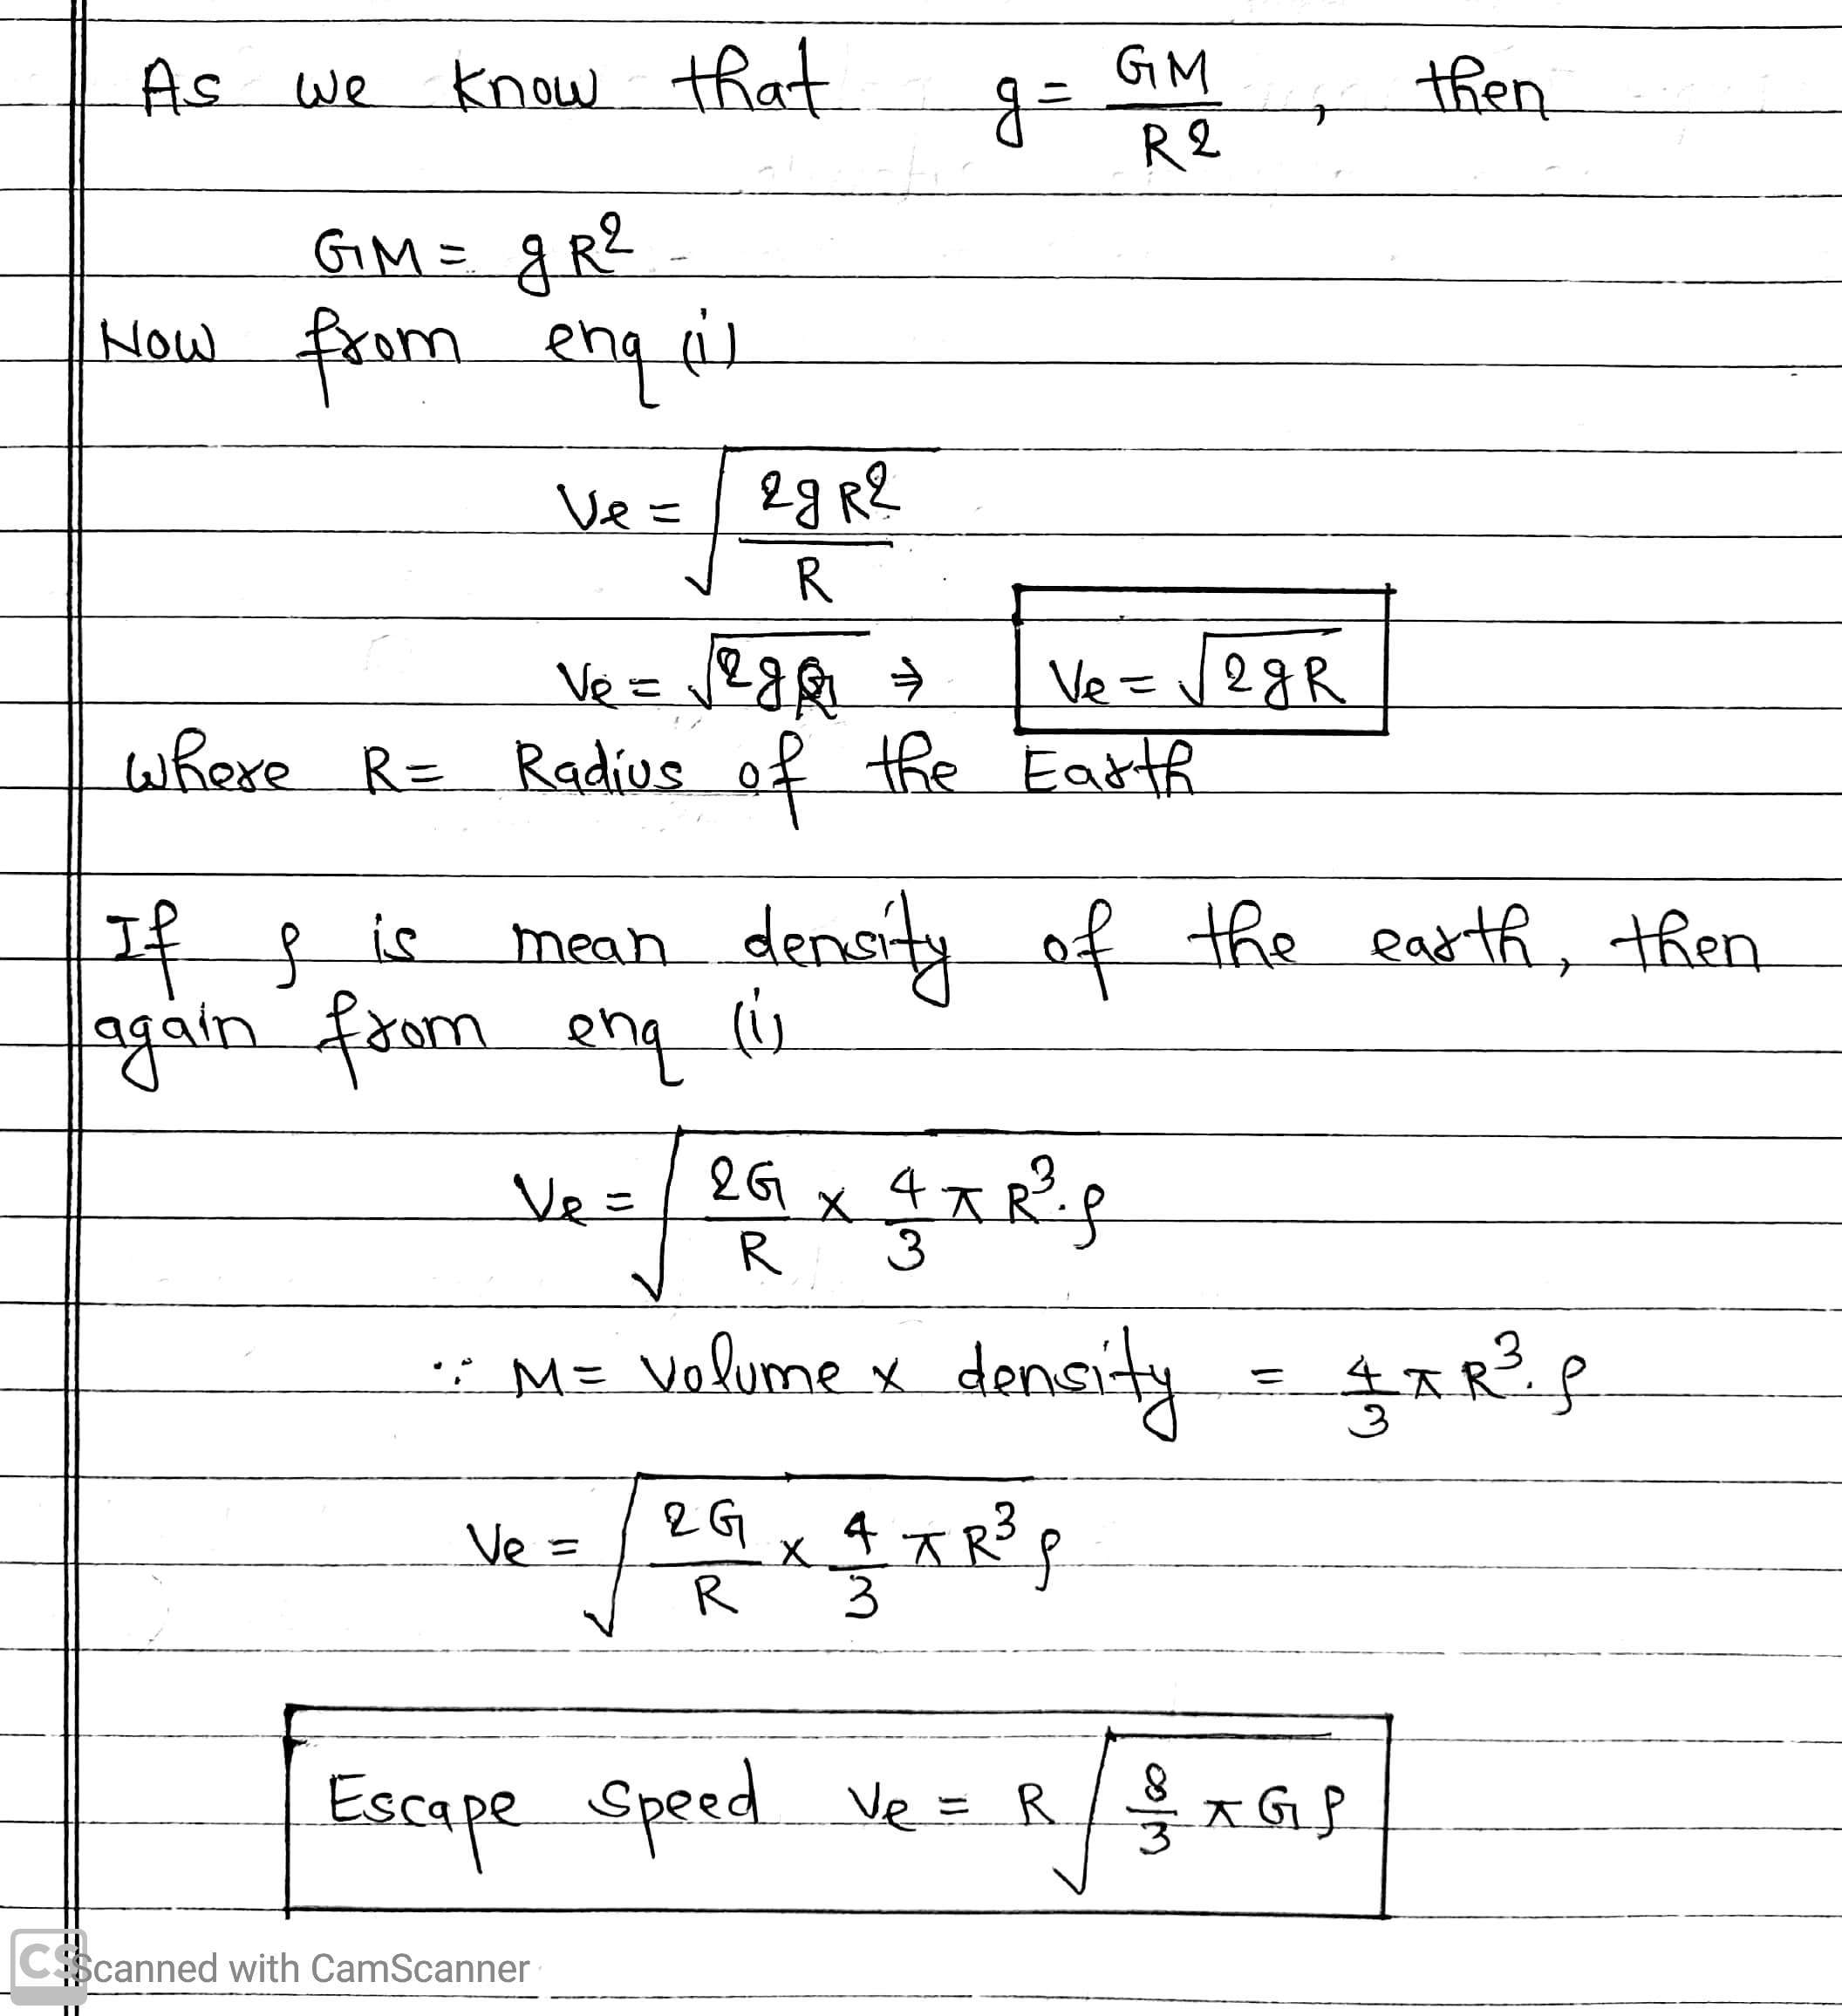 As we know that g = GM/R2 , then
GM = gR²
Now from enq (i)
Ve = √(2gR²/R)
Ve = √2gR ⇒ Ve = √2gR
where R = Radius of the Earth
If ρ is mean density of the earth, then
again from enq (i)
Ve = √(2G/R x 4/3 π R³.ρ)
∵ M = volume x density = 4/3 π R³.ρ
Ve = √(2G/R x 4/3 π R³ ρ)
Escape speed Ve = R √(8/3 π G ρ)
CS Scanned with CamScanner